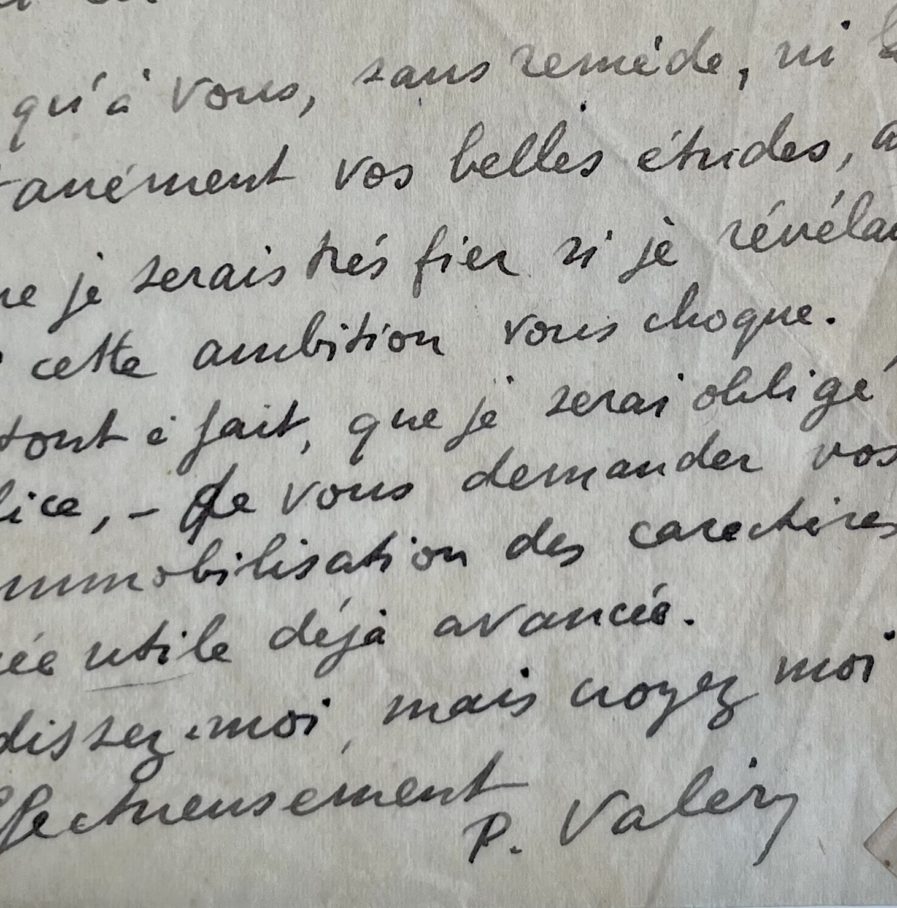 qu'à vous, sans remède, ni
anément vos belles études,
je serais très fier si je révélai
cette ambition vous choque.
tout à fait, que je serai obligé
lice, - de vous demander vos
immobilisation des caractères
ée utile déjà avancée.
dissez-moi, mais croyez moi
ffectueusement
P. Valéry